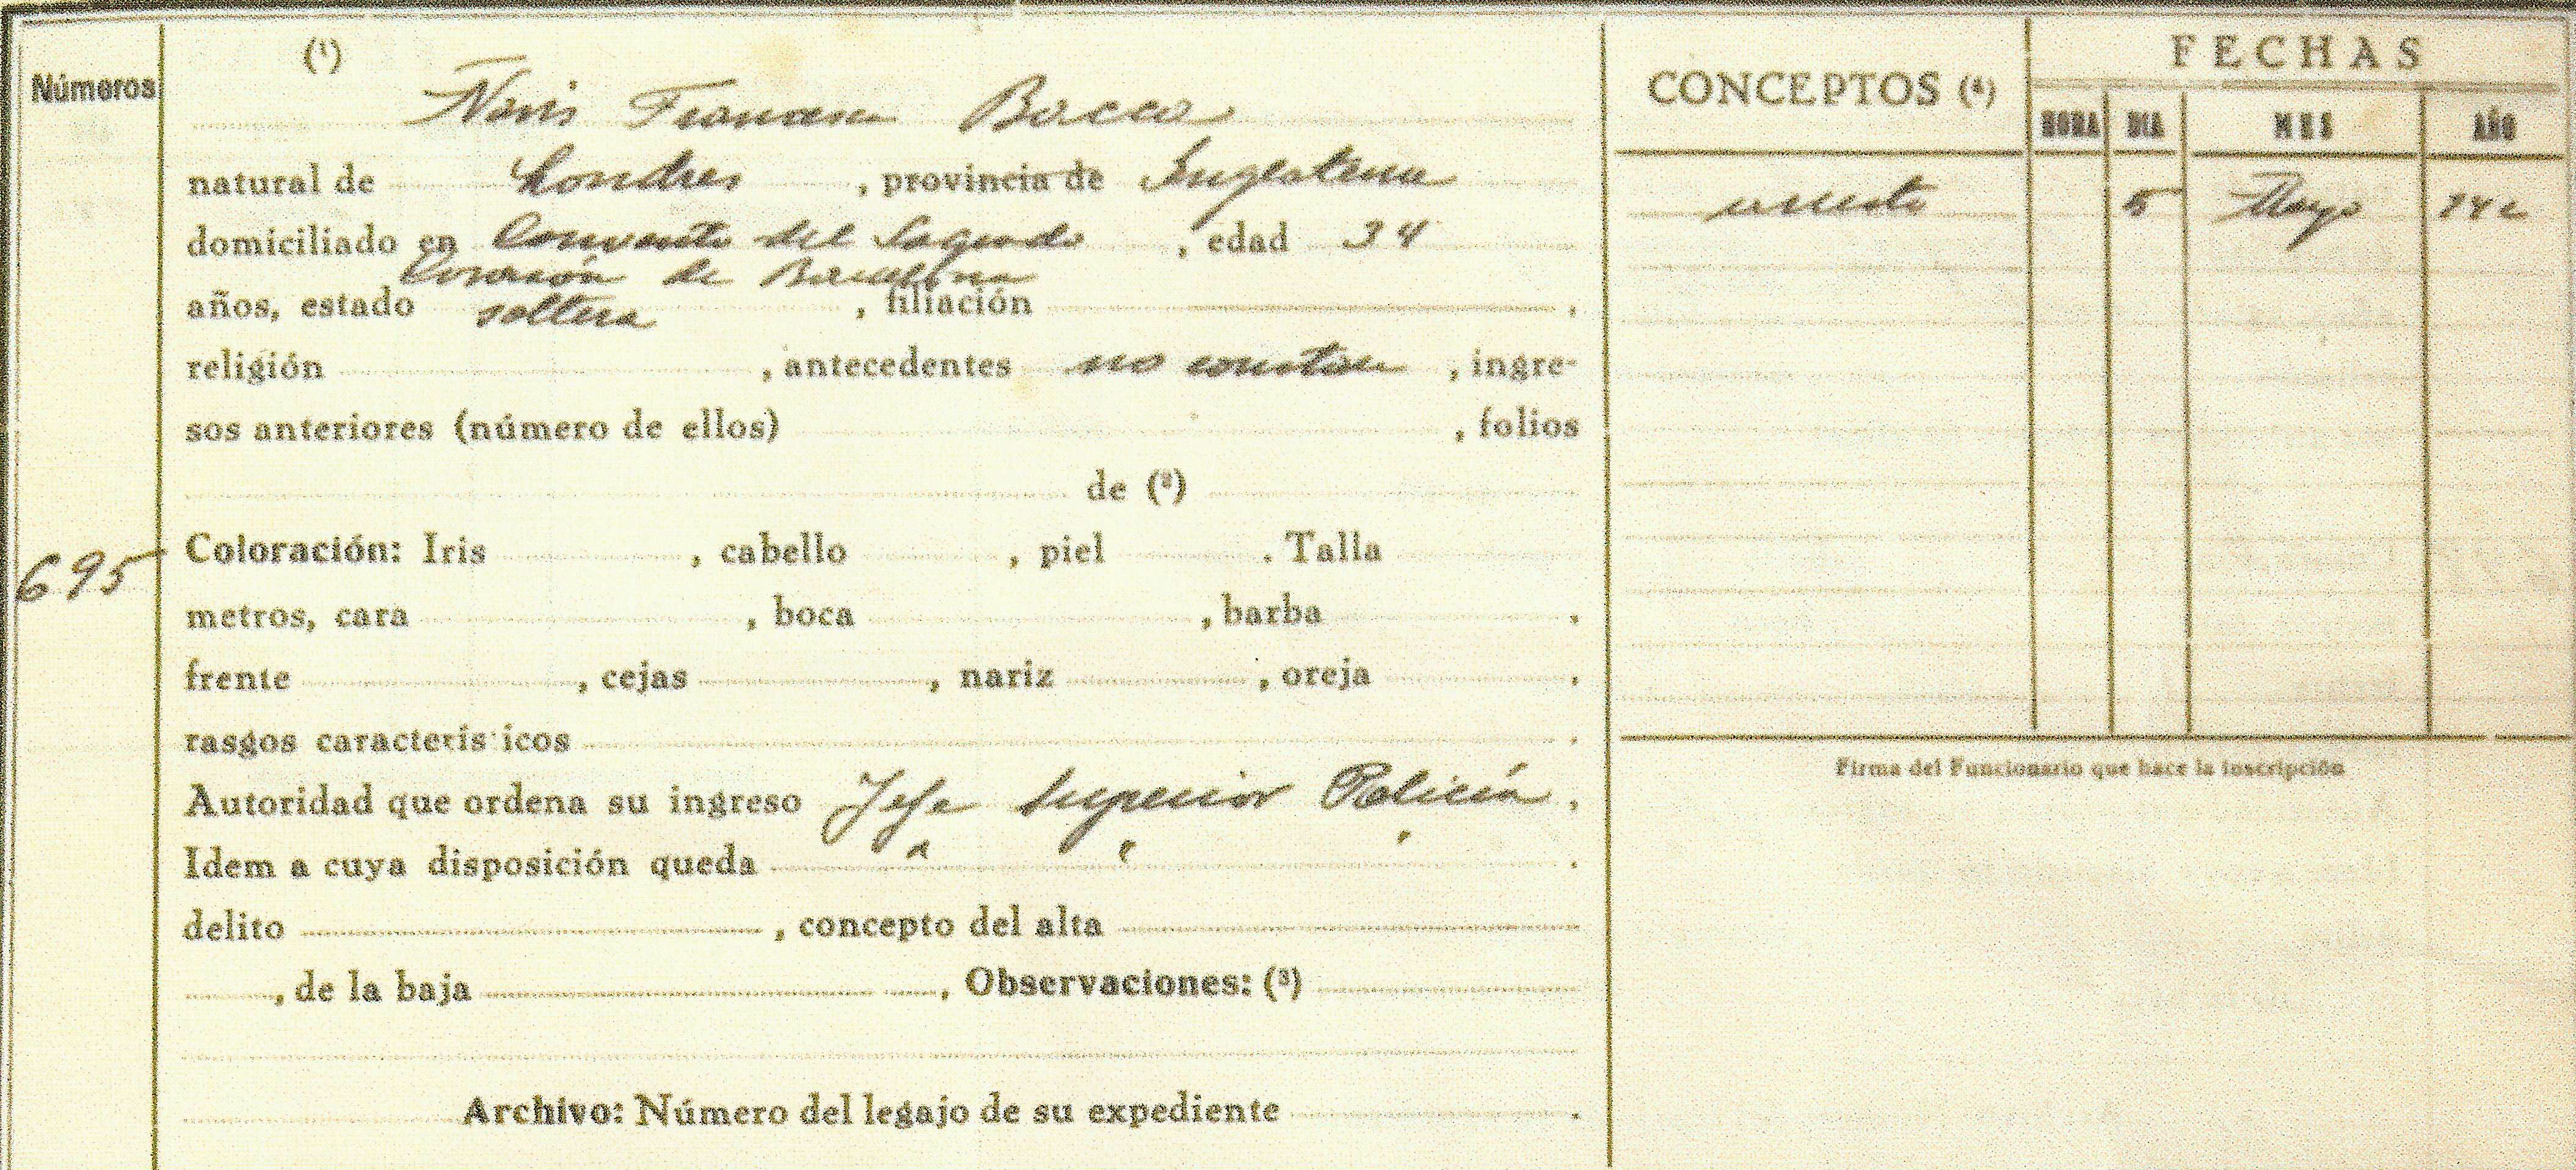 Números
(¹)
Noris Bacca
natural de Londres, provincia de Inglaterra
domiciliado en Convento del Sagrado, edad 34
Corazón de Barcelona
años, estado soltera, filiación
religión , antecedentes no constan, ingre-
sos anteriores (número de ellos) , folios
de (²)
695
Coloración: Iris , cabello , piel . Talla
metros, cara , boca , barba .
frente , cejas , nariz , oreja .
rasgos caracterís icos .
Autoridad que ordena su ingreso Jefe Superior Policía.
Idem a cuya disposición queda .
delito , concepto del alta
, de la baja , Observaciones: (³)
Archivo: Número del legajo de su expediente .
CONCEPTOS (⁴)
FECHAS
HORA DIA MES AÑO
5 Mayo 942
Firma del Funcionario que hace la inscripción